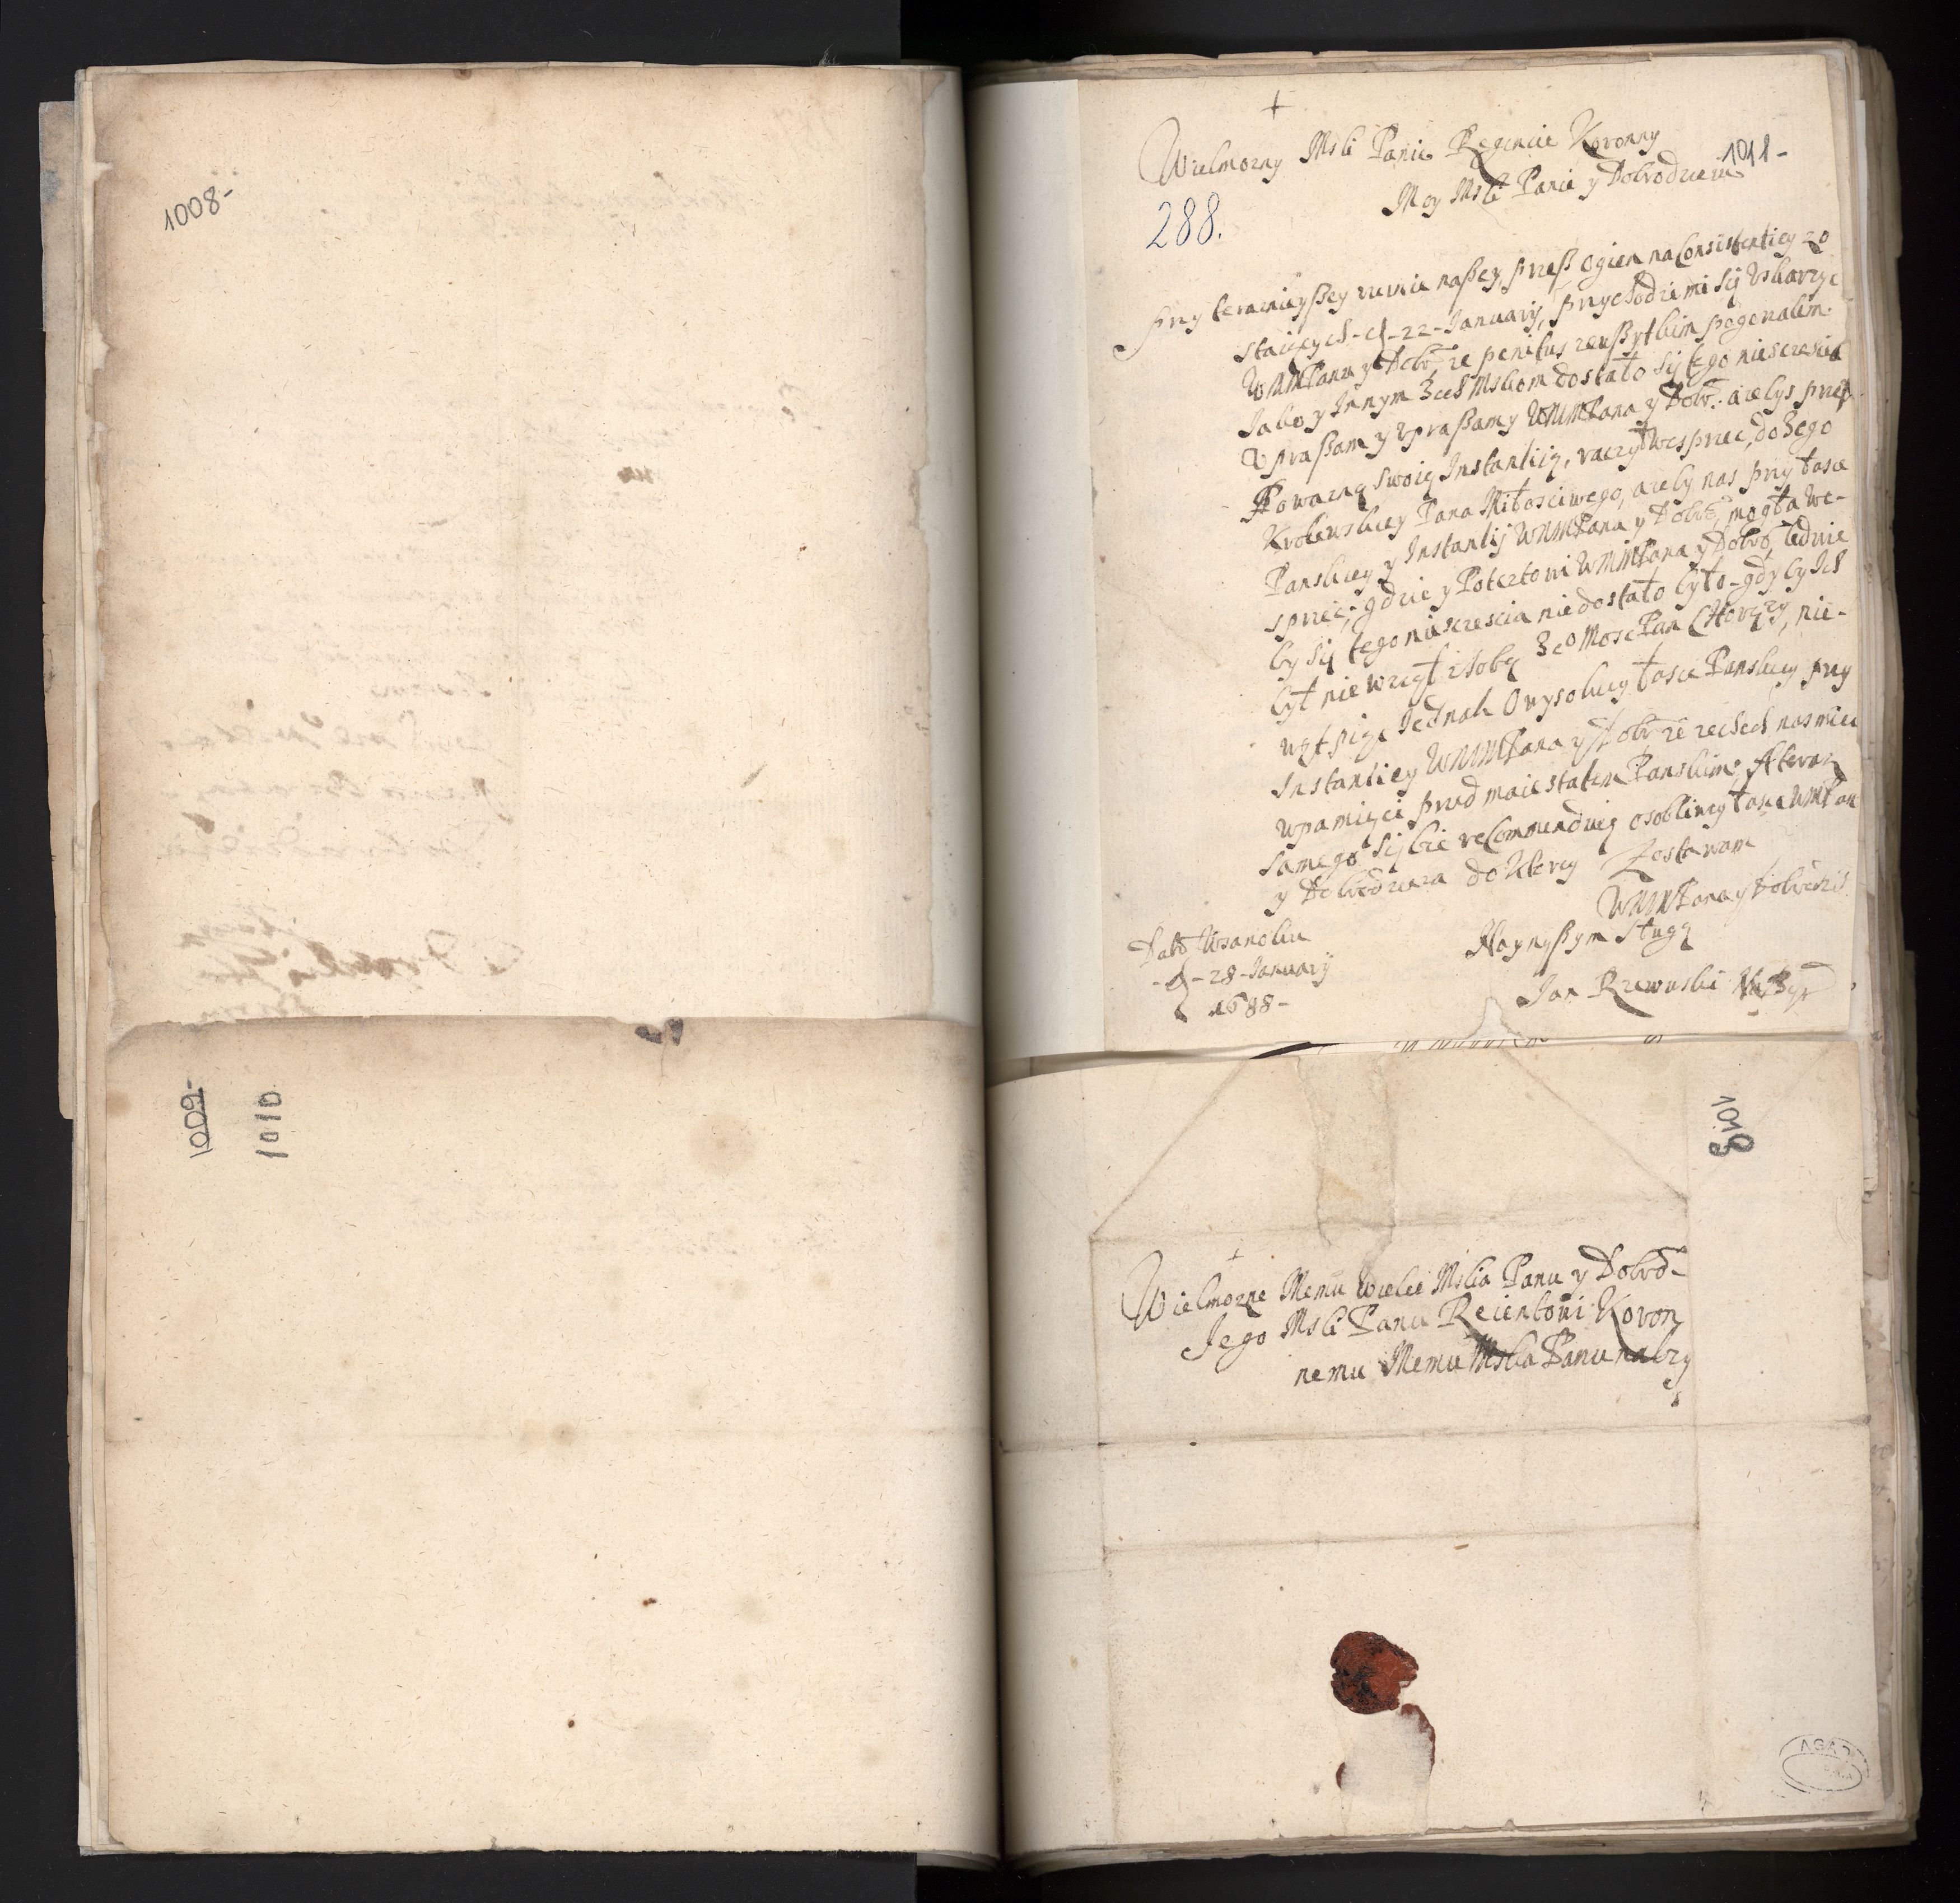 1008-
1009-
1010
+
Wielmozny Msći Panie Regencie Koronny
1011-
Moy Msći Panie y Dobrodzieiu
288.
przy teraznieyßey ruinie naßey, przeß ogien na Consistentiey zo
staiących -d- 22 - Januarÿ, przychodzi mi się Uskarzyc
WMMPanu y Dobr: ze penitus zewßytkim pogorzałem.
Jako y Innym Ich Msciom dostało się tego niesczescia
Upraßam y upraßamy WMMPana y Dobr: azebys przeß
Powazną swoią Instantiią, raczył wesprzec, do Jego
Krolewskiey Pana Miłosciwego, azeby nas przy łasce
Panskiey y Instantij WMMPana y Dobro, mogła we-
sprzec, gdzie y Potcztowi WMMPana y Dobro, ledwie
by się tego niesczescia niedostało było - gdyby Ich
był nie wziął z sobą Jeo Mosc Pan Chorązy, nie-
wątpię Jednak O wysokiey łasce Panskiey przy
Instantiey WMMPana y Dobr ze zechcesz nas miec
w pamięci przed maiestatem Panskim. A teraz
samego siebie recommenduię osobliwey łasce WMPan
y Dobrodzieia do Ktorey Zostawam
WMMPana y Dobrodzis.
Naynyßym Sługą
Dato
-d- 28 - Januarÿ
1688-
Jan Rzewuski
1018
+
Wielmozne Memu wielce Mscia Panu y Dobrō-
Jego Msći Panu Reientowi Koron
nemu Memu Mscia Panu nalezy
AGAD